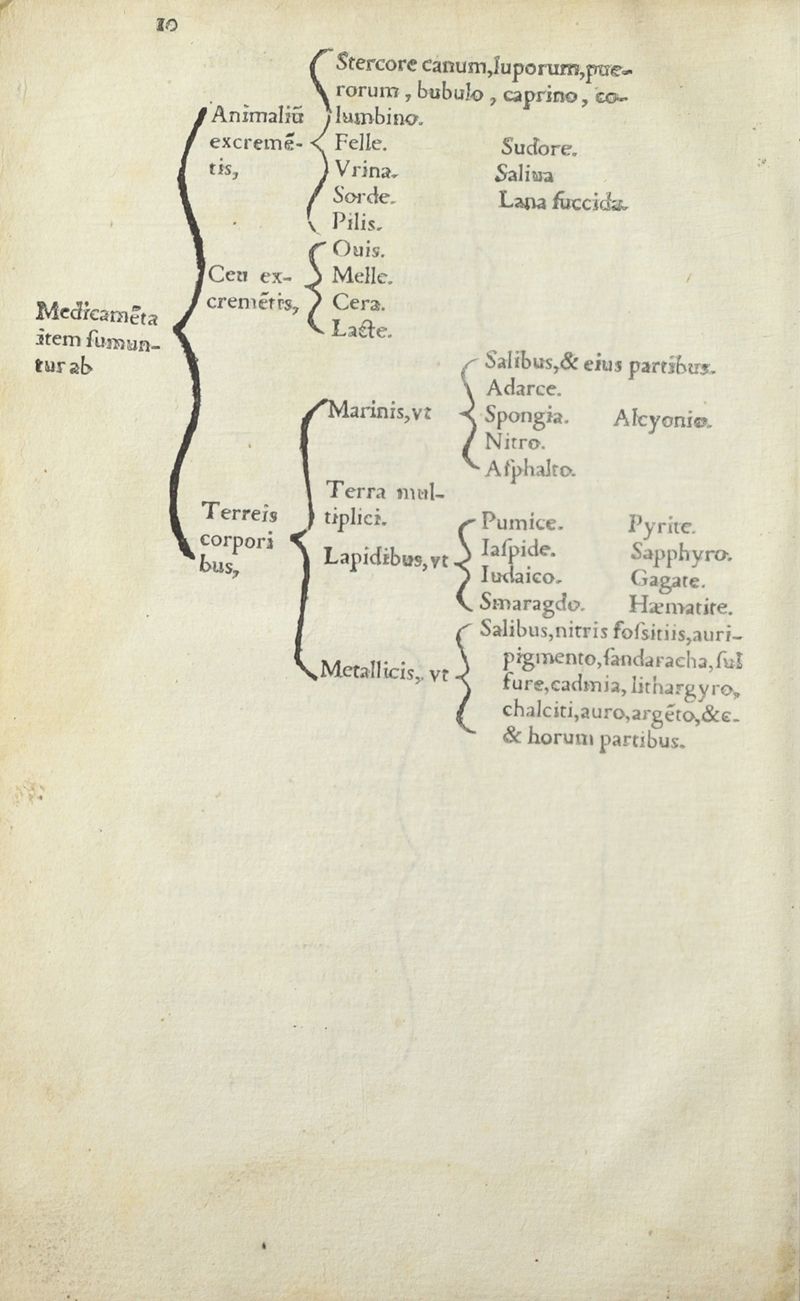 10
Medicamēta
item ſumun-
tur ab
Animaliū
excremē-
tis,
Stercore canum, luporum, pue-
rorum, bubulo, caprino, co-
lumbino.
Felle.
Vrina.
Sorde.
Pilis.
Sudore.
Saliua
Lana ſuccida.
Ceu ex-
cremētis,
Ouis.
Melle.
Cera.
Lacte.
Terreis
corpori
bus,
Marinis, vt
Salibus, & eius partibus.
Adarce.
Spongia. Alcyonio.
Nitro.
Aſphalto.
Terra mul-
tiplici.
Lapidibus, vt
Pumice. Pyrite.
Iaſpide. Sapphyro.
Iudaico. Gagate.
Smaragdo. Hæmatite.
Metallicis, vt
Salibus, nitris foſsitiis, auri-
pigmento, ſandaracha, ſul
fure, cadmia, lithargyro,
chalciti, auro, argēto, &c.
& horum partibus.